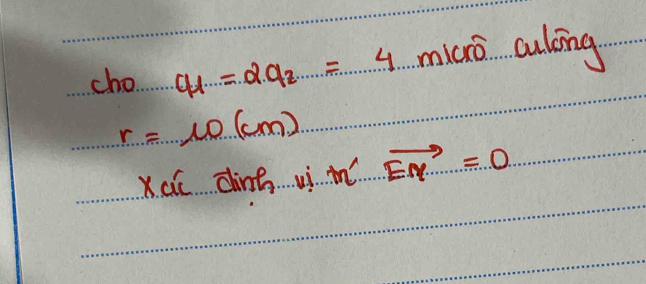 cho q1 = 2q2 = 4 micrô culông
r = 10 (cm)
Xác định vị trí EM = 0